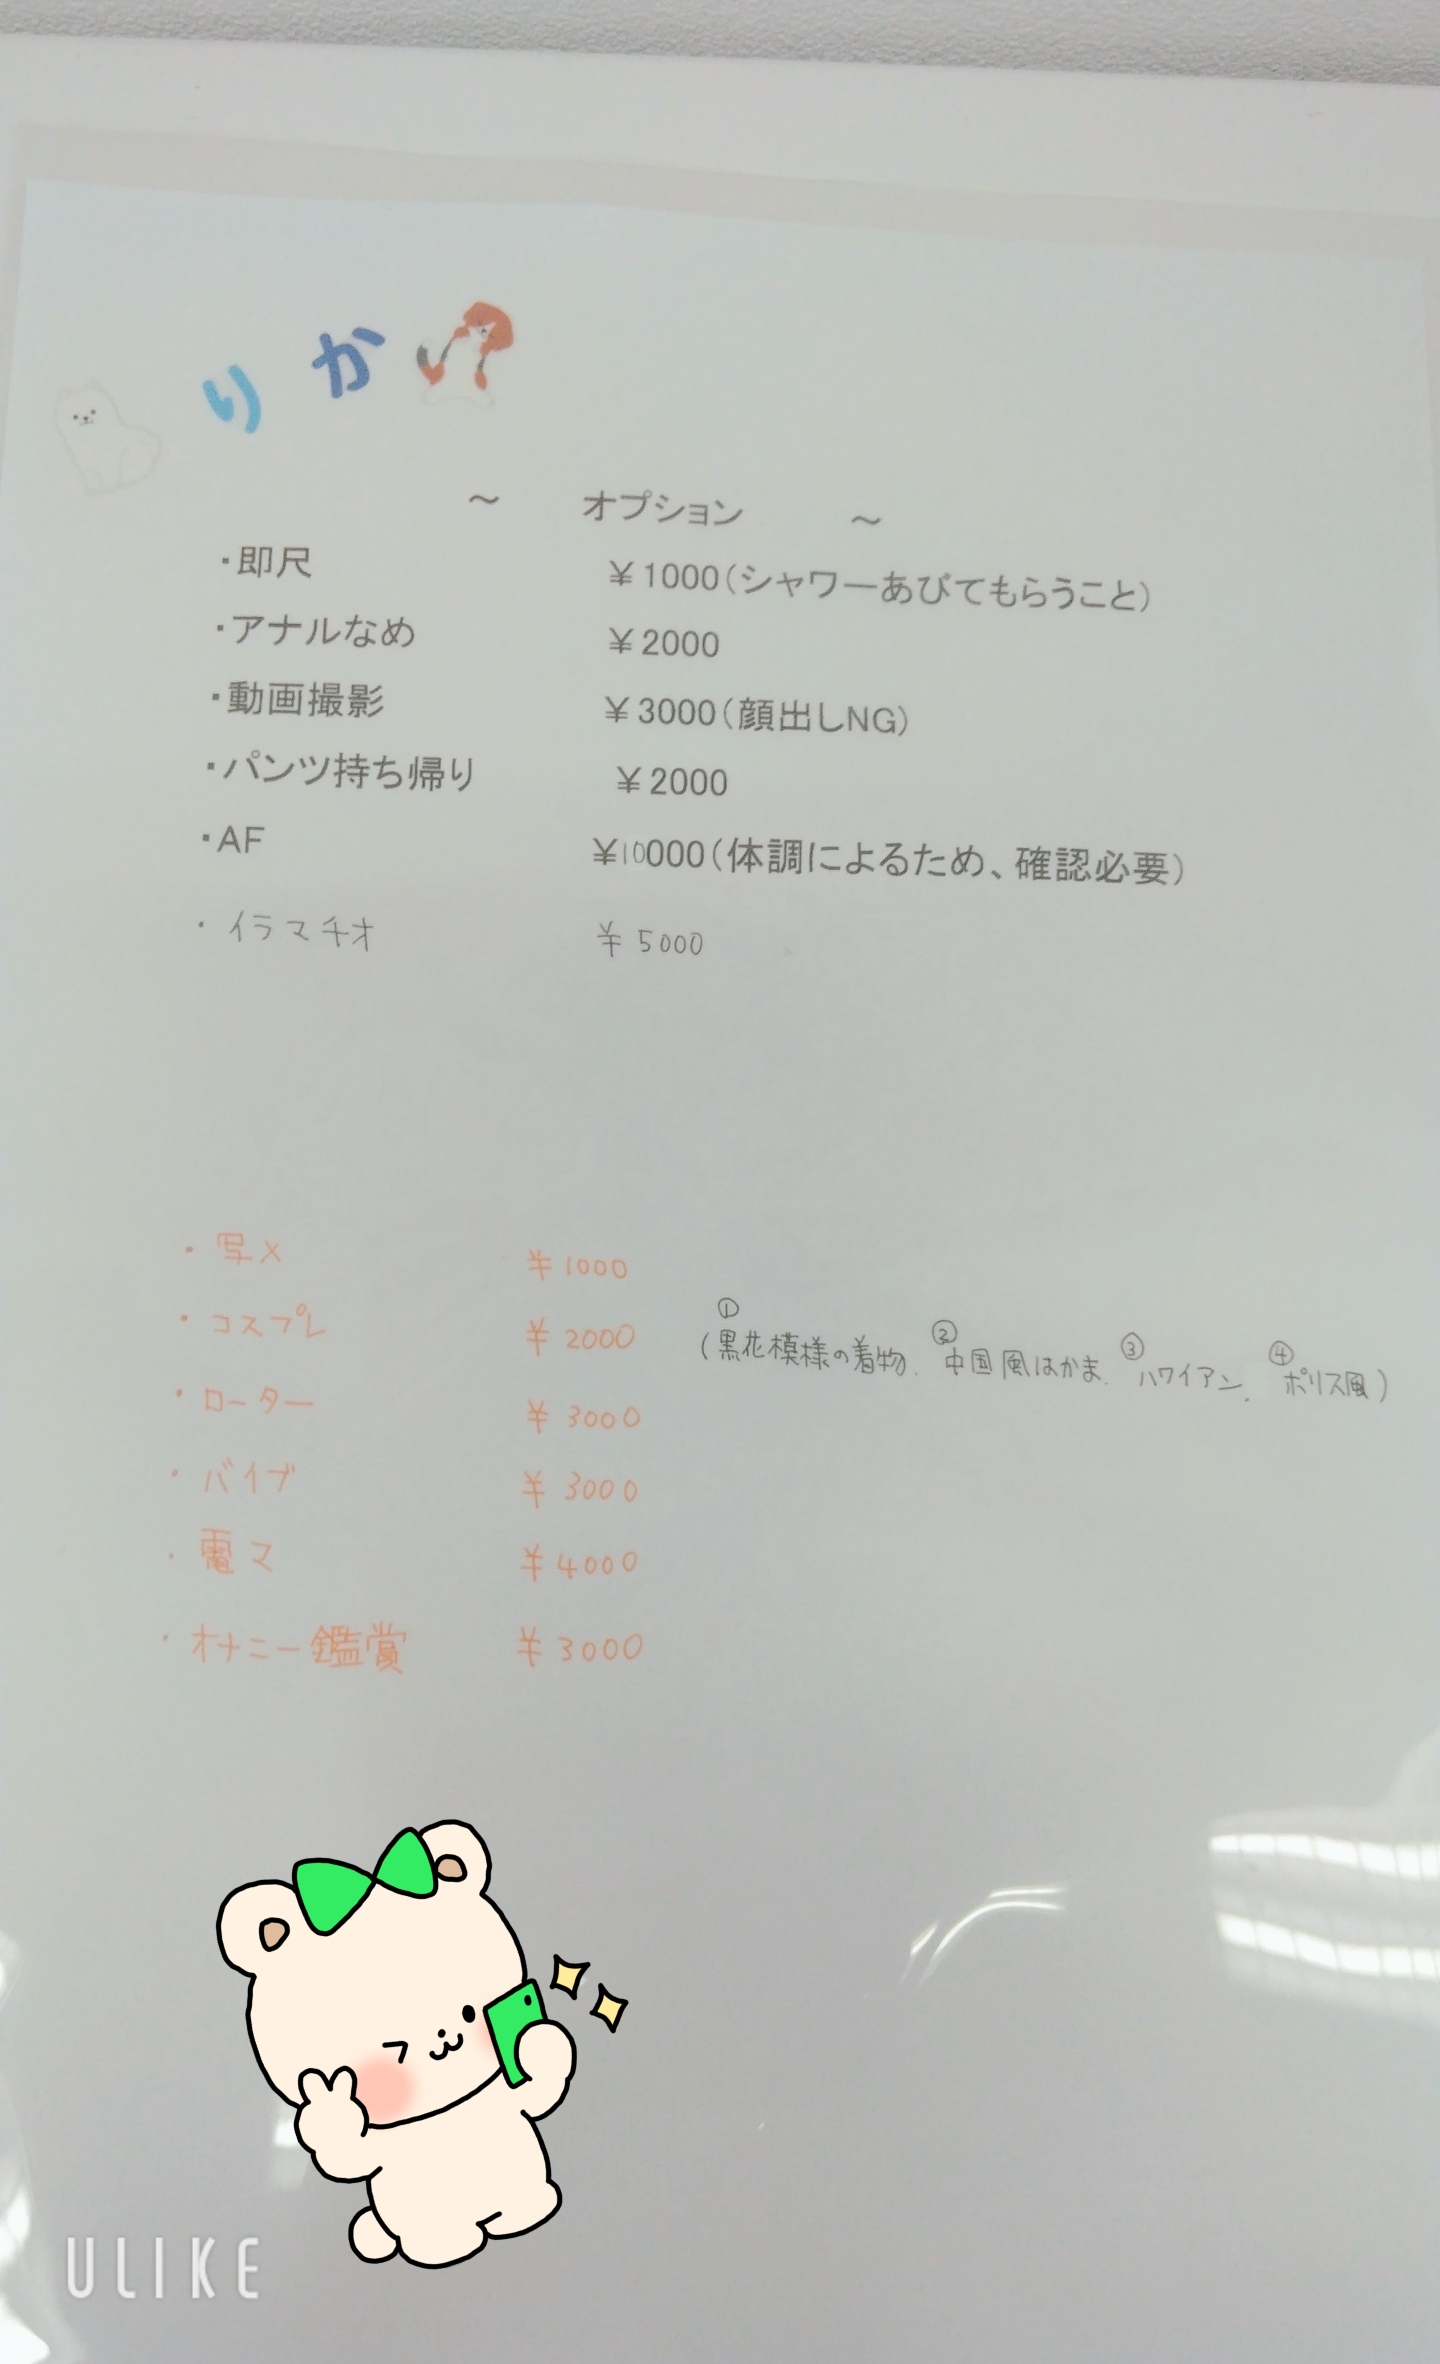 りか
～ オプション ～
・即尺 ￥1000(シャワーあびてもらうこと)
・アナルなめ ￥2000
・動画撮影 ￥3000(顔出しNG)
・パンツ持ち帰り ￥2000
・AF ￥10000(体調によるため、確認必要)
・イラマチオ ￥5000
・写メ ￥1000
・コスプレ ￥2000 (①黒花模様の着物. ②中国風はかま. ③ハワイアン. ④ポリス風)
・ローター ￥3000
・バイブ ￥3000
・電マ ￥4000
・オナニー鑑賞 ￥3000
ULIKE